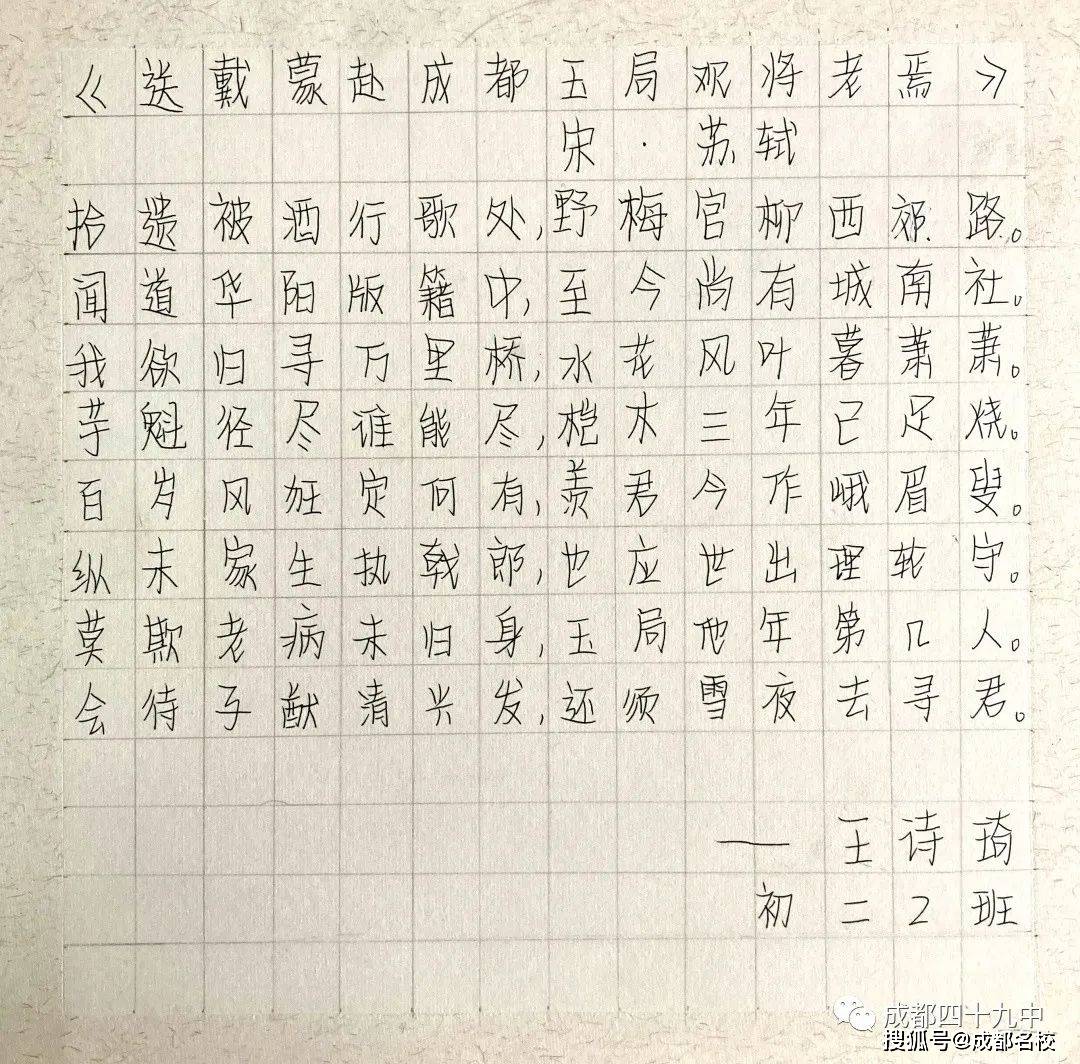 《送戴蒙赴成都玉局观将老焉》
宋·苏轼
拾遗被酒行歌处,野梅官柳西郊路。
闻道华阳版籍中,至今尚有城南社。
我欲归寻万里桥,水花风叶暮萧萧。
芋魁径尽谁能尽,桤木三年已足烧。
百岁风狂定何有,羡君今作峨眉叟。
纵未家生执戟郎,也应世出理轮守。
莫欺老病未归身,玉局他年第几人。
会待子猷清兴发,还须雪夜去寻君。
——王诗琦
初二2班
成都四十九中
搜狐号@成都名校